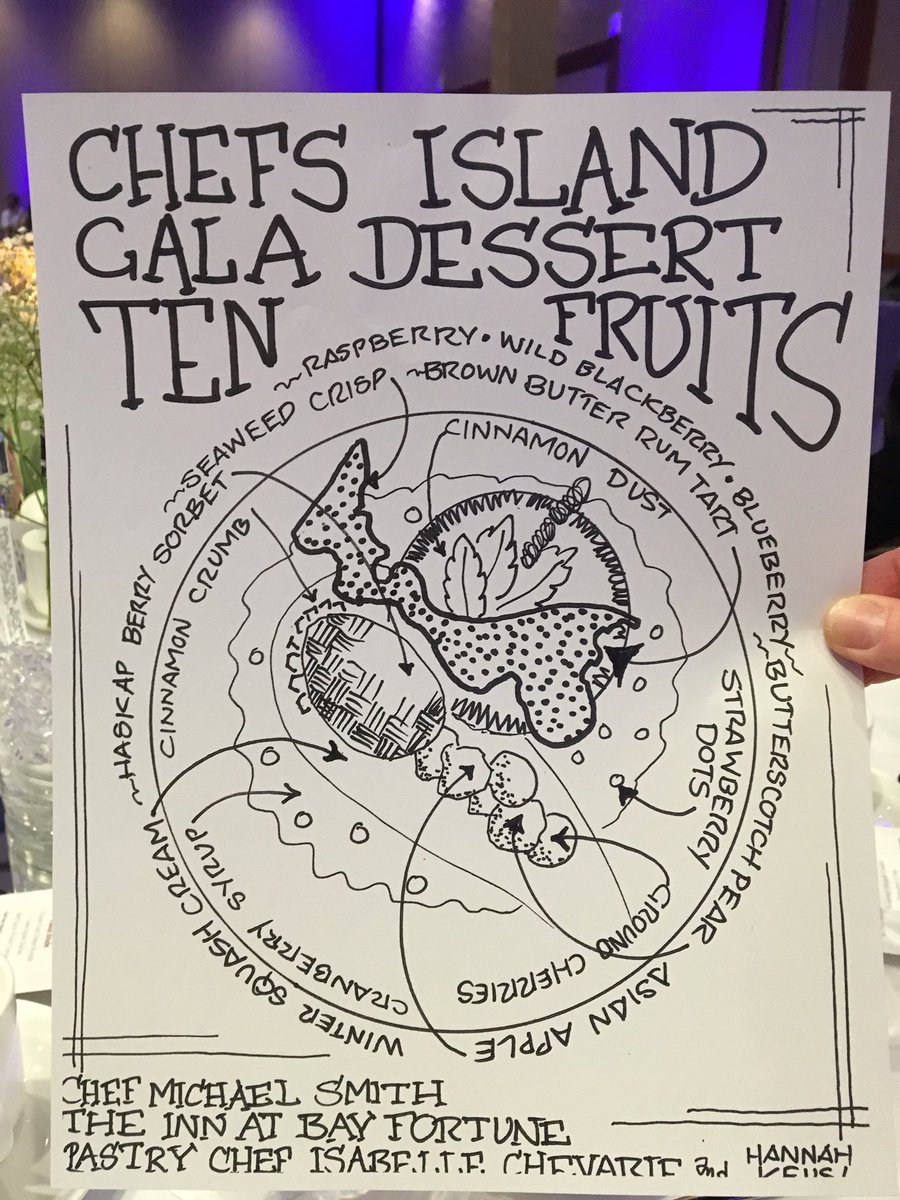 CHEFS ISLAND
GALA DESSERT
TEN FRUITS
~RASPBERRY • WILD BLACKBERRY • BLUEBERRY
~BROWN BUTTER RUM TART
~SEAWEED CRISP
CINNAMON DUST
~HASKAP BERRY SORBET
CINNAMON CRUMB
STRAWBERRY
DOTS
~BUTTERSCOTCH PEAR
WINTER SQUASH CREAM
CRANBERRY SYRUP
GROUND CHERRIES
ASIAN APPLE
CHEF MICHAEL SMITH
THE INN AT BAY FORTUNE
PASTRY CHEF ISABELLE CHEVARIE and HANNAH